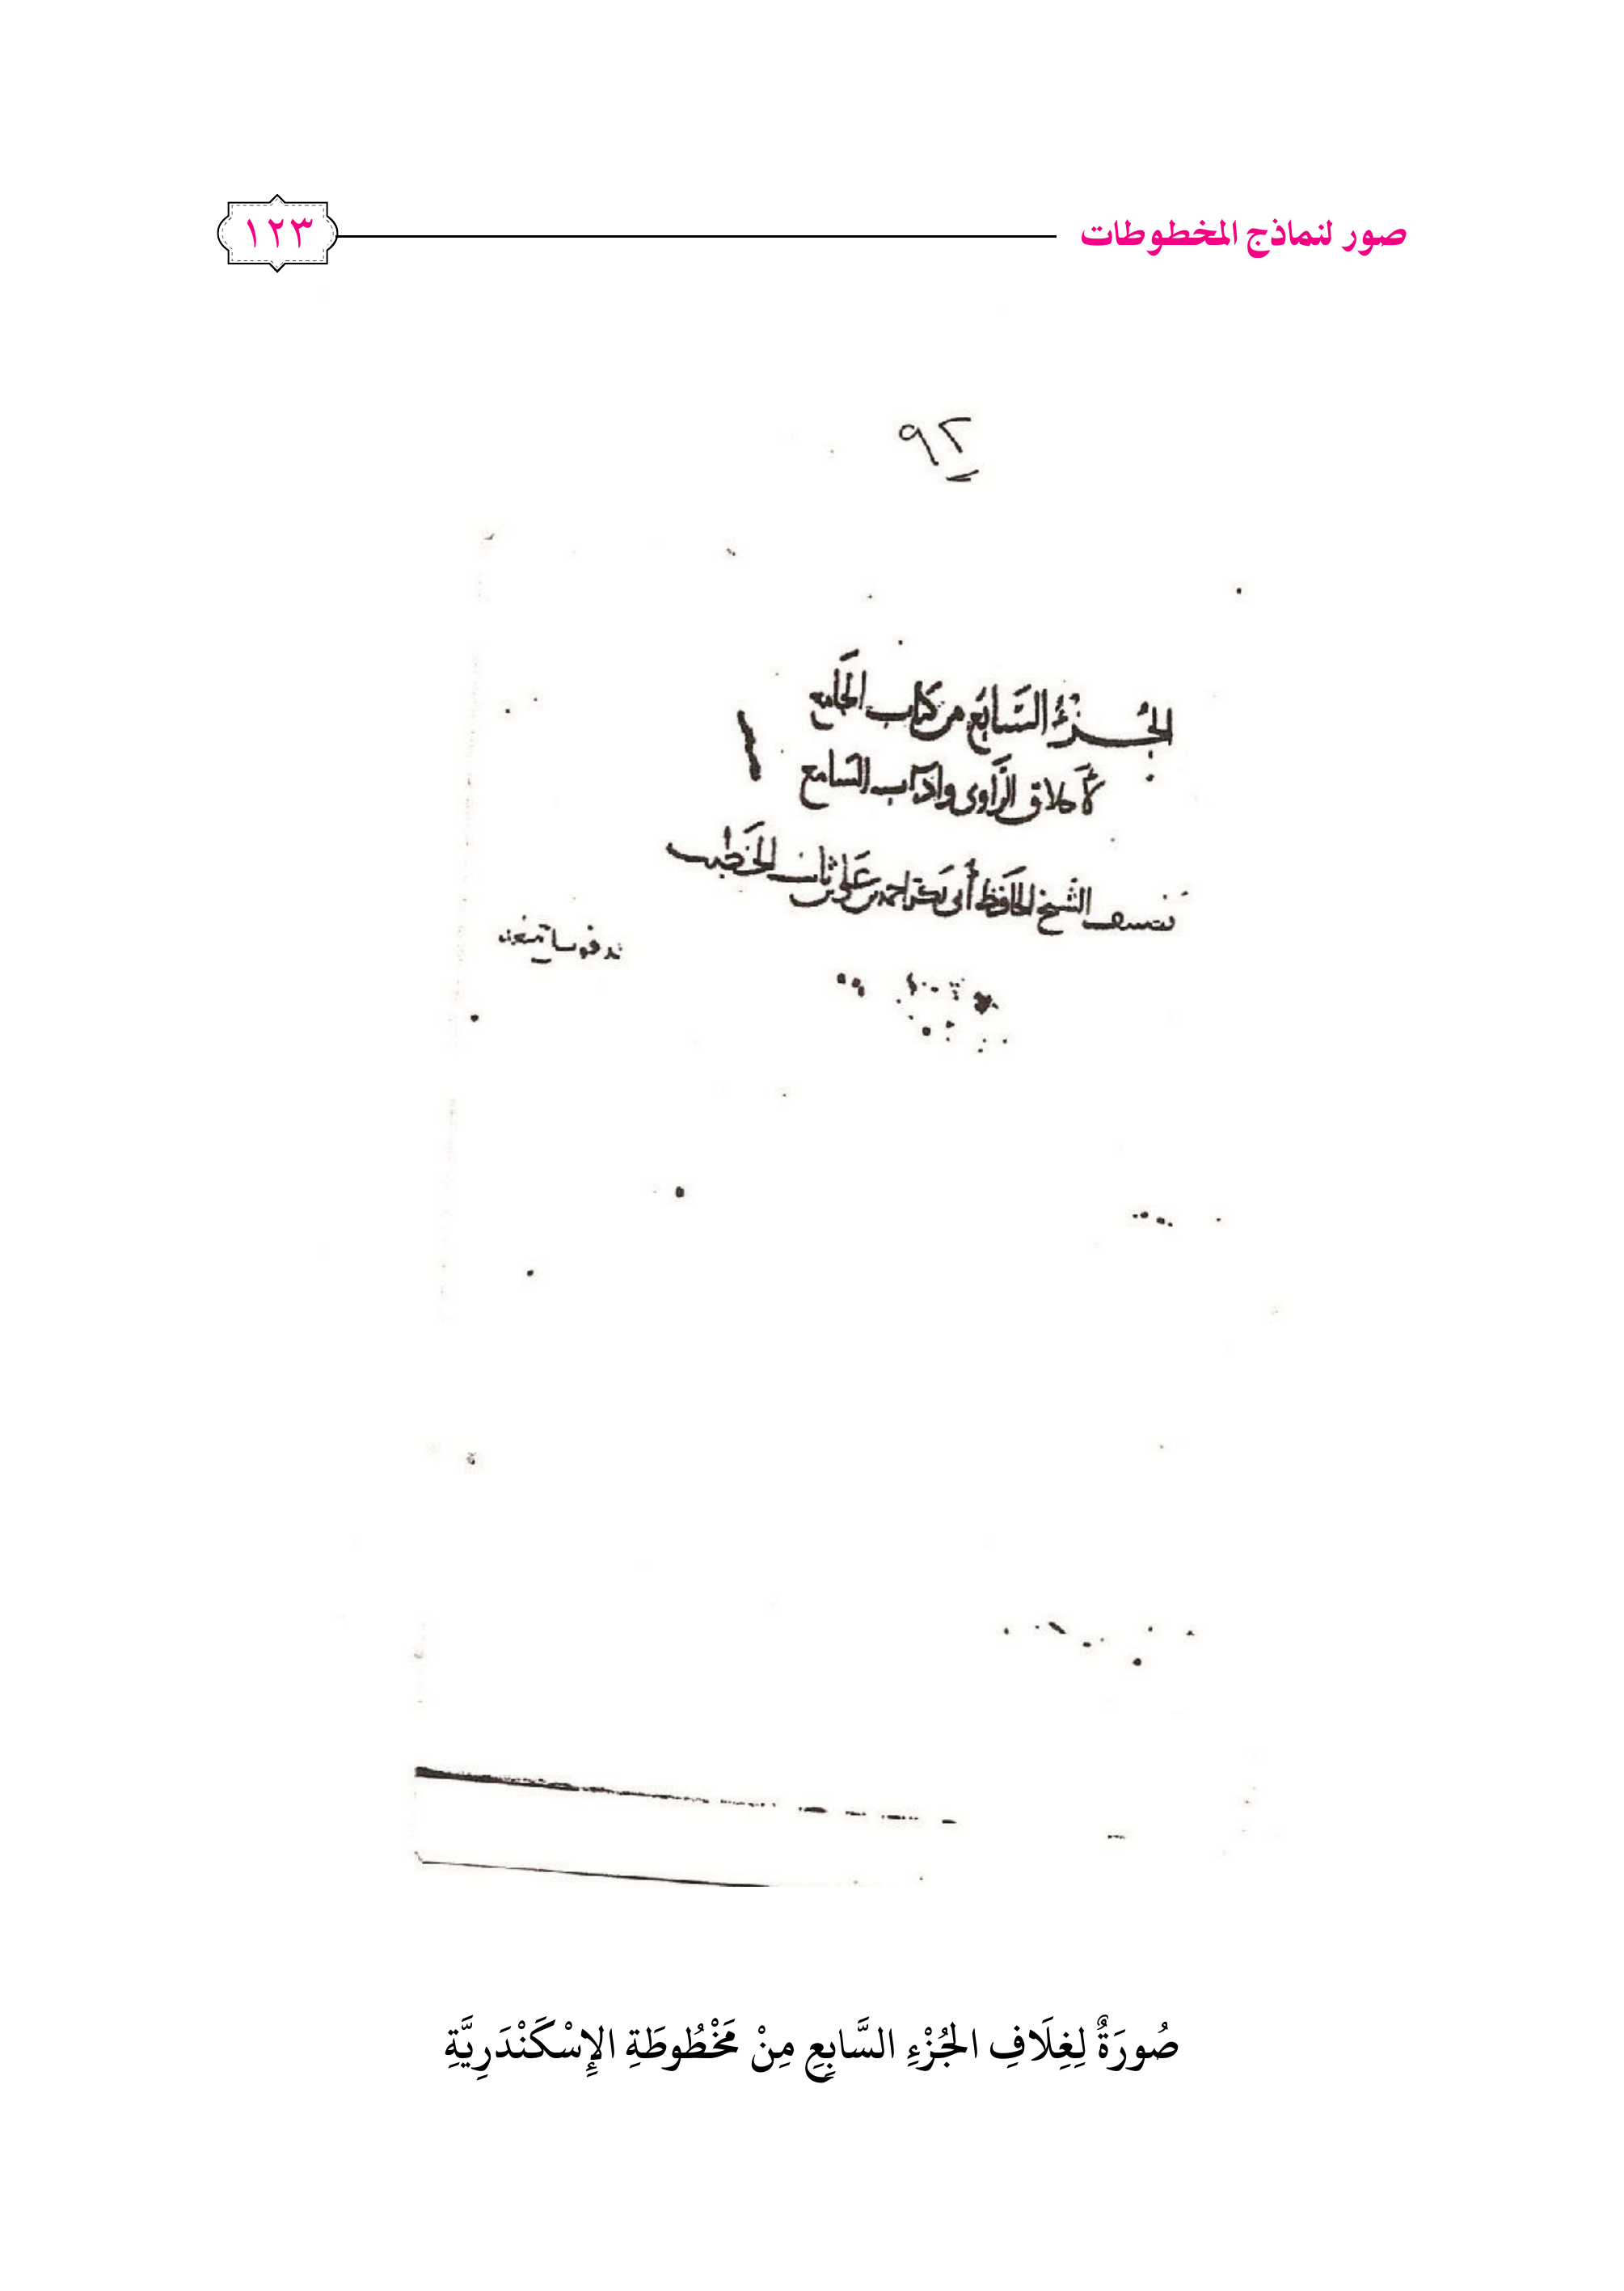 صور لنماذج المخطوطات
١٢٣
٩٢
الجُزْءُ السَّابِع من كتاب الجَامع
لأخلاق الرَّاوى واداب السَّامع
تصنيف الشَّيخ الحَافظ أبى بَكر احمد بن عَلى بن ثابت الخَطيب
صُورَةٌ لِغِلَافِ الجُزْءِ السَّابِعِ مِنْ مَخْطُوطَةِ الإِسْكَنْدَرِيَّةِ